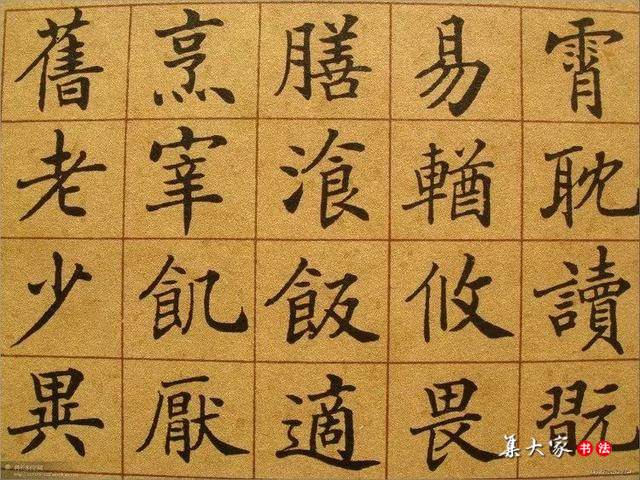 霄耽讀翫
易輶攸畏
膳湌飯適
烹宰飢厭
舊老少異
集大家书法